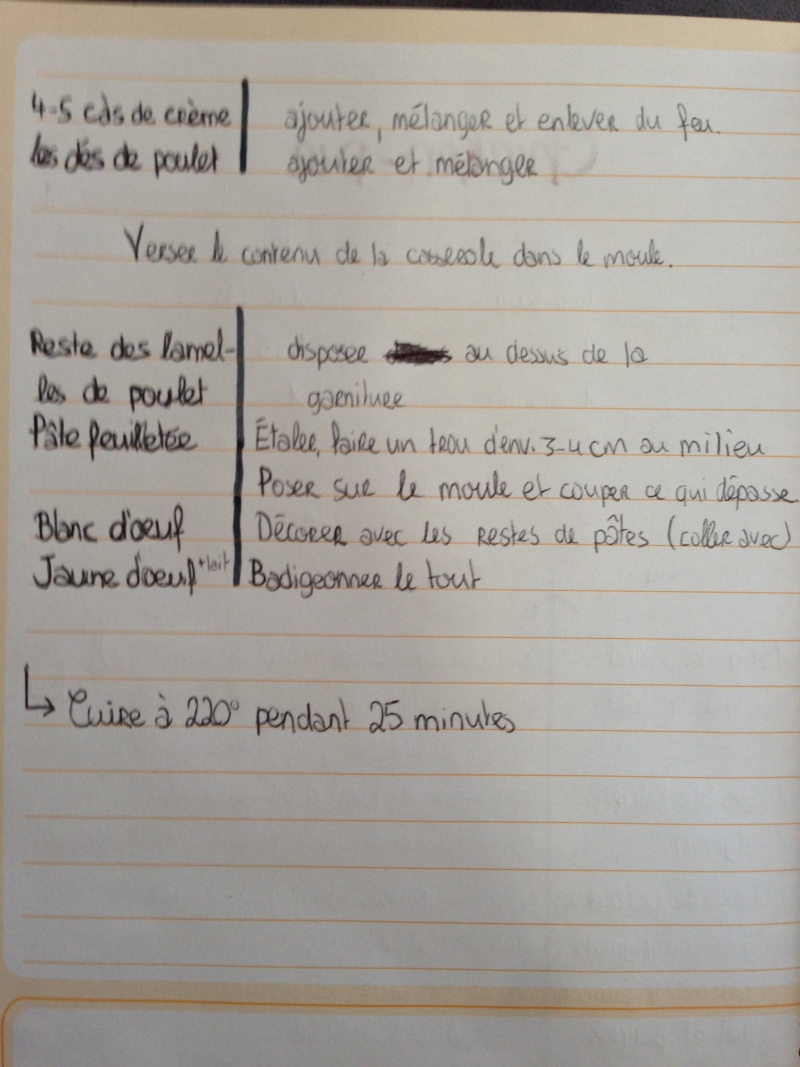 4-5 càs de crème ajouter, mélanger et enlever du feu.
les dés de poulet ajouter et mélanger
Verser le contenu de la casserole dans le moule.
Reste des lamel- disposer au dessus de la
les de poulet garniture
Pâte feuilletée Étaler, faire un trou d'env. 3-4 cm au milieu
Poser sur le moule et couper ce qui dépasse
Blanc d'oeuf Décorer avec les restes de pâtes (coller avec)
Jaune d'oeuf +lait Badigeonner le tout
↳ Cuire à 220° pendant 25 minutes